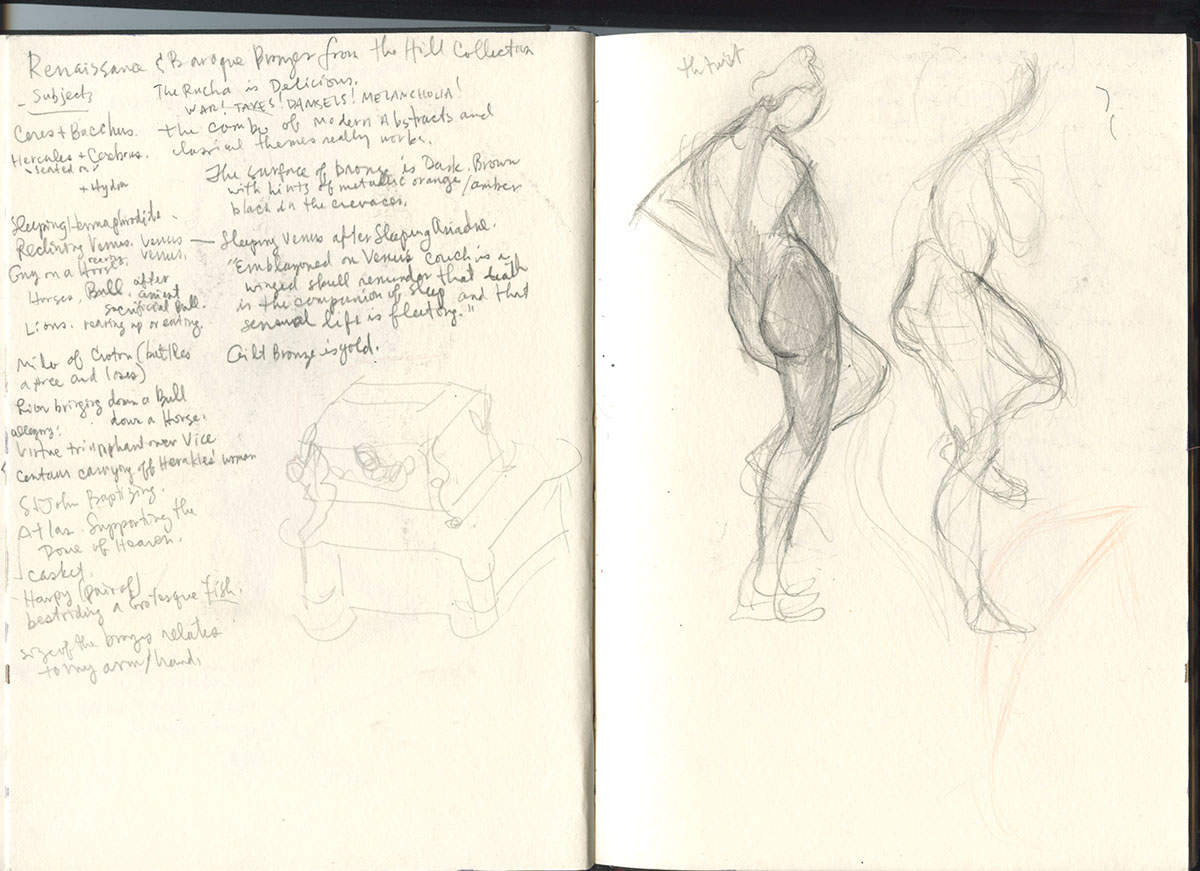 Renaissance & Baroque Bronzes from the Hill Collection
- Subjects
The Rucha is Delicious.
WAR! TAXES! DAMSELS! MELANCHOLIA!
the combo of Modern Abstracts and
classical themes really works.
Ceres + Bacchus.
Hercules + Cerebrus.
seated on
+ Hydra
The surface of bronze is Dark Brown
with hints of metallic orange/amber
black in the crevaces.
Sleeping Hermaphrodite.
Reclining Venus. Venus — Sleeping Venus after Sleeping Ariadne.
rearing, Venus.
Guy on a Horse
Horses, Bull. after
ancient
sacrificial Bull.
Lions. rearing up or eating.
"Emblazoned on Venus' couch is a
winged skull reminder that death
is the companion of sleep and that
sensual life is fleeting."
Gilt Bronze is gold.
Milo of Croton (battles
a tree and loses)
Lion bringing down a Bull
down a Horse.
allegory:
Virtue triumphant over Vice
Centaur carrying off Herakles' woman
St John Baptizing.
Atlas Supporting the
Dome of Heaven.
- casket.
- Harpy (pair of)
bestriding a Grotesque Fish.
size of the bronzes relates
to my arm/hands
th twist